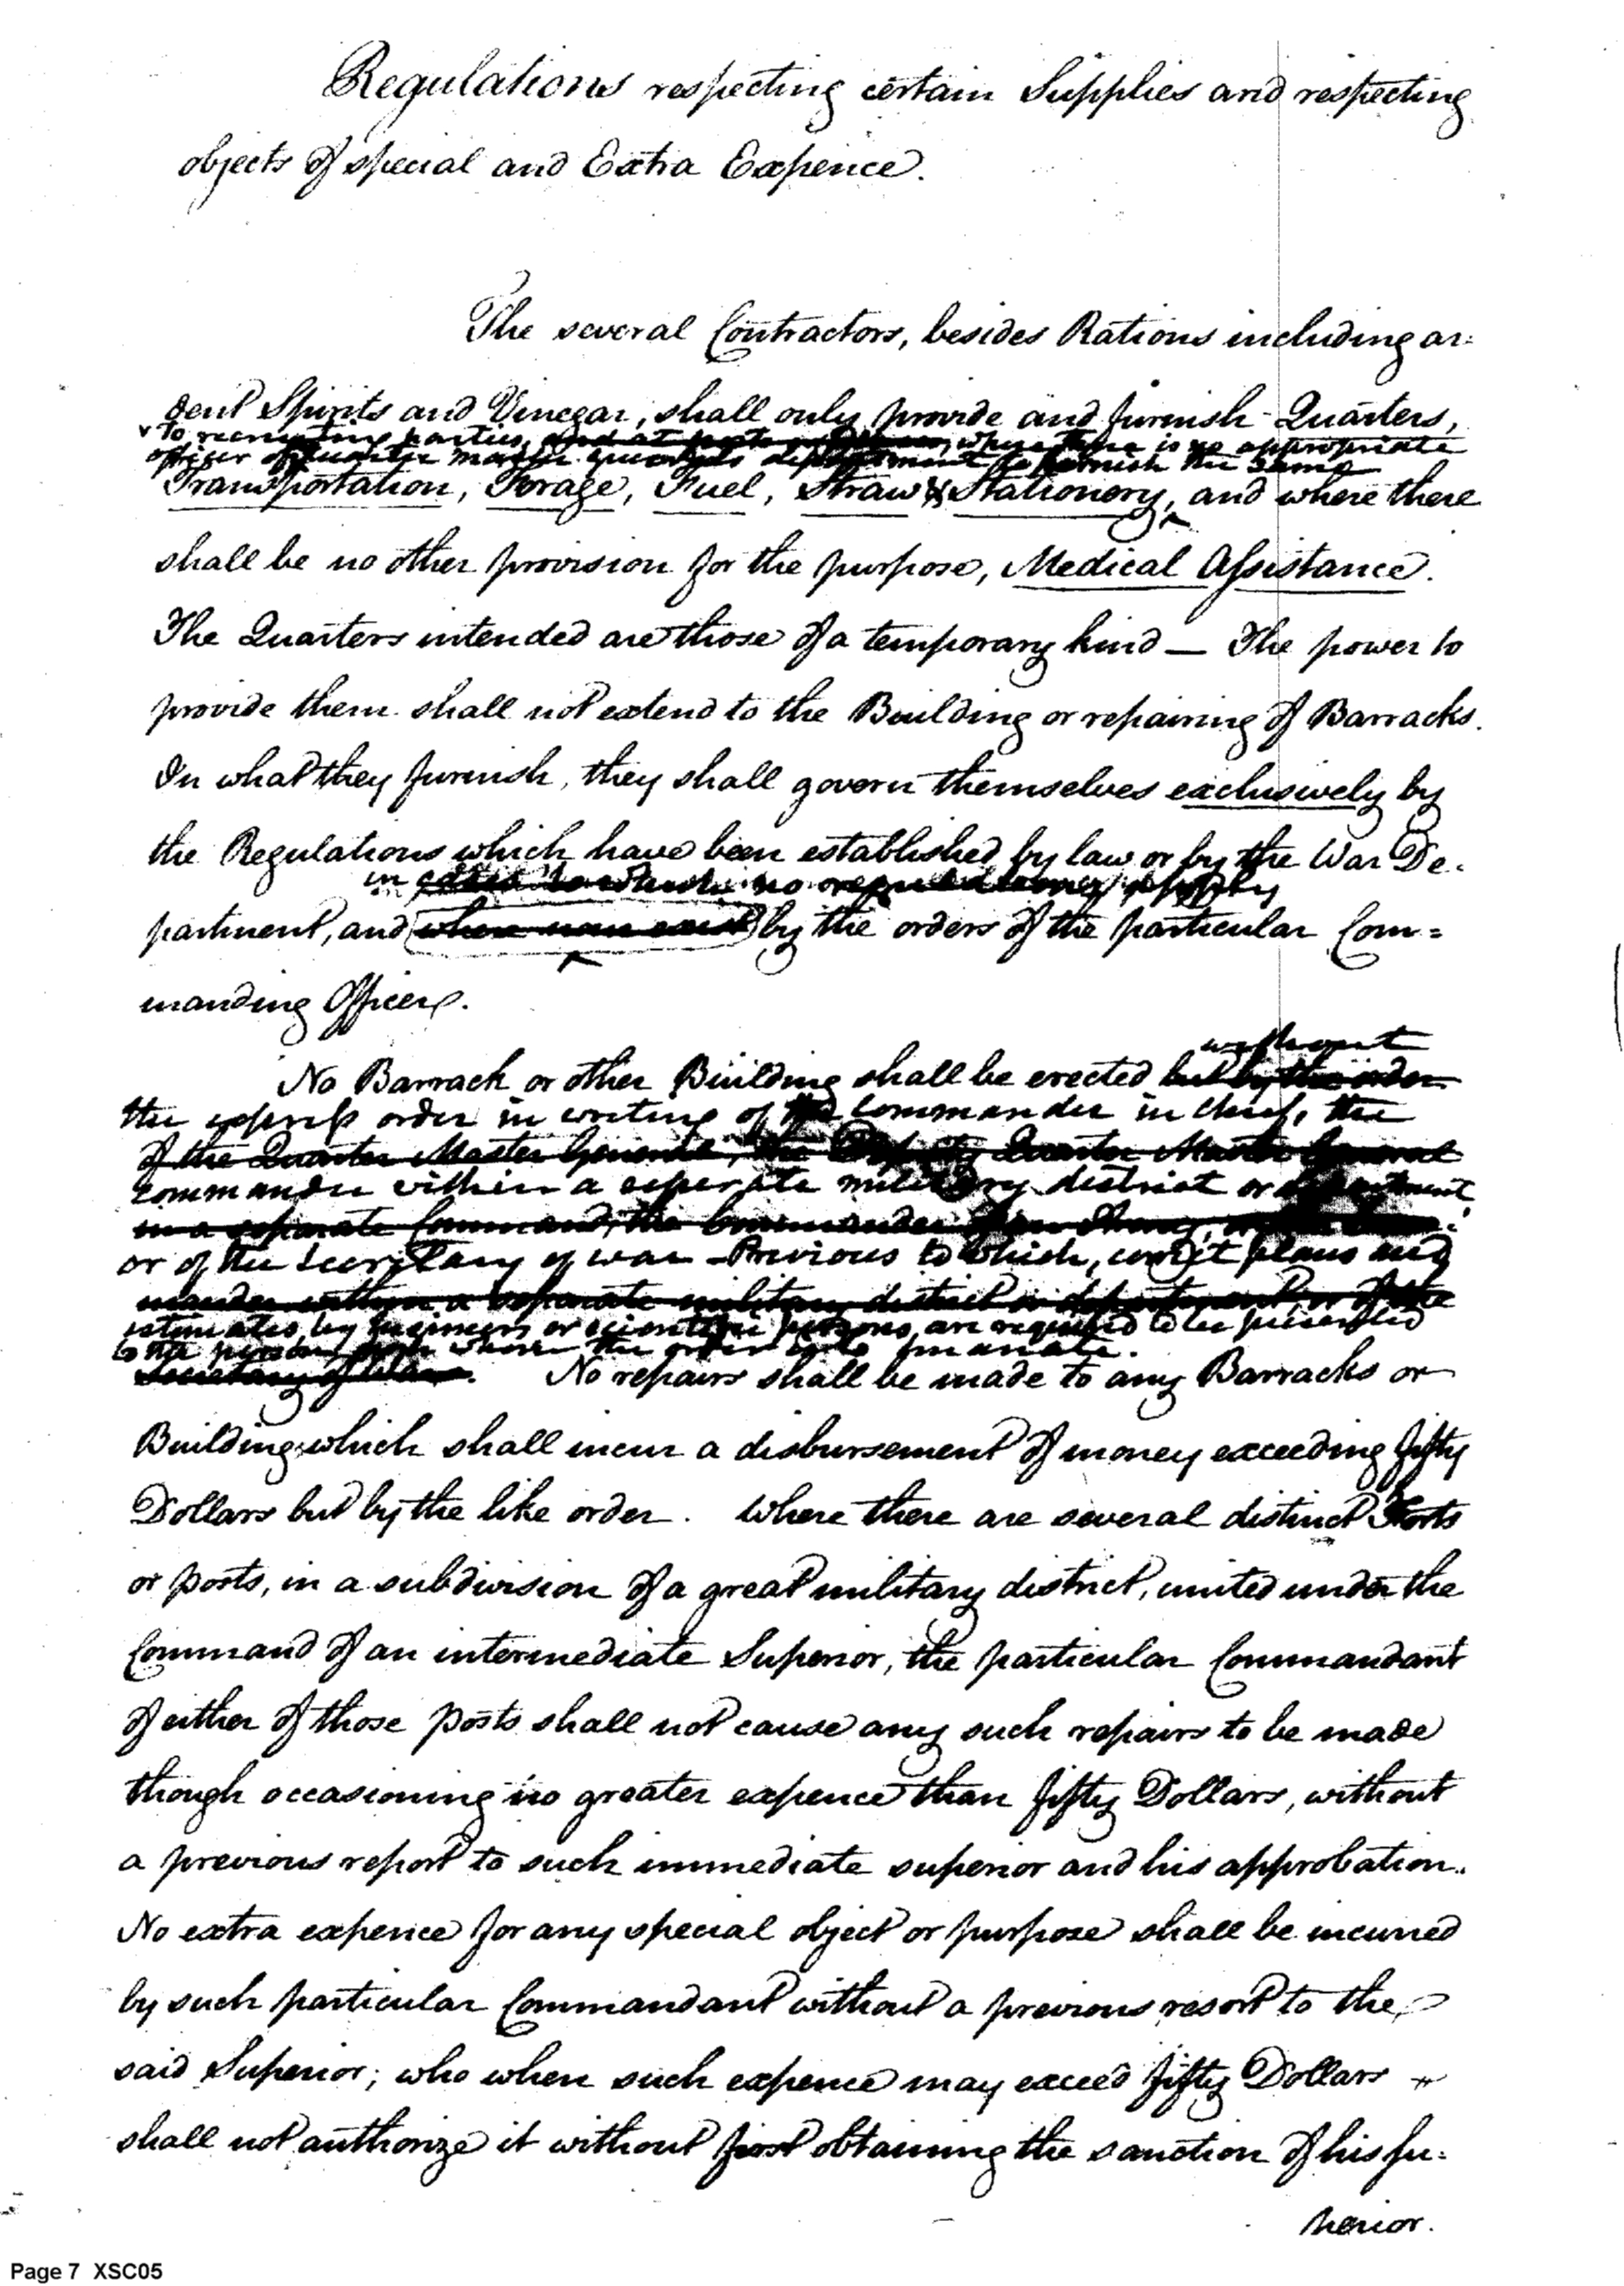 Regulations respecting certain Supplies and respecting
objects of special and Extra Expence.
The several Contractors, besides Rations including ar:
dent Spirits and Vinegar, shall only provide and furnish Quarters,
v To recruiting parties, and at posts where there is no appropriate
officer of quarter master generals department to furnish the same
Transportation, Forage, Fuel, Straw & Stationery, and where there
shall be no other provision for the purpose, Medical Assistance.
The Quarters intended are those of a temporary kind — The power to
provide them shall not extend to the Building or repairing of Barracks.
In what they furnish, they shall govern themselves exclusively by
the Regulations which have been established by law or by the War De.
in cases to which no regulations apply
partment, and where none exist by the orders of the particular Com=
manding Officer.
without
No Barrack or other Building shall be erected but by the order
the express order in writing of the Commander in chief, the
of the Quarter Master General, the Deputy Quarter Master General
commander within a seperate military district or department
in a separate Command, the Commander
or of the Secretary of war - Previous to which, correct plans and
mander within a separate military district or department or of the
estimates, by Engineers or scientific persons, are required to be presented
to the person, from whom the order is to emanate.
Secretary of War. No repairs shall be made to any Barracks or
Building which shall incur a disbursement of money exceeding fifty
Dollars but by the like order. Where there are several distinct Forts
or posts, in a subdivision of a great military district, united under the
Command of an intermediate Superior, the particular Commandant
of either of those Posts shall not cause any such repairs to be made
though occasioning no greater expence than fifty Dollars, without
a previous report to such immediate superior and his approbation.
No extra expence for any special object or purpose shall be incurred
by such particular Commandant without a previous resort to the
said Superior; who when such expence may exceed fifty Dollars
shall not authorize it without first obtaining the sanction of his su:
perior.
Page 7 XSC05